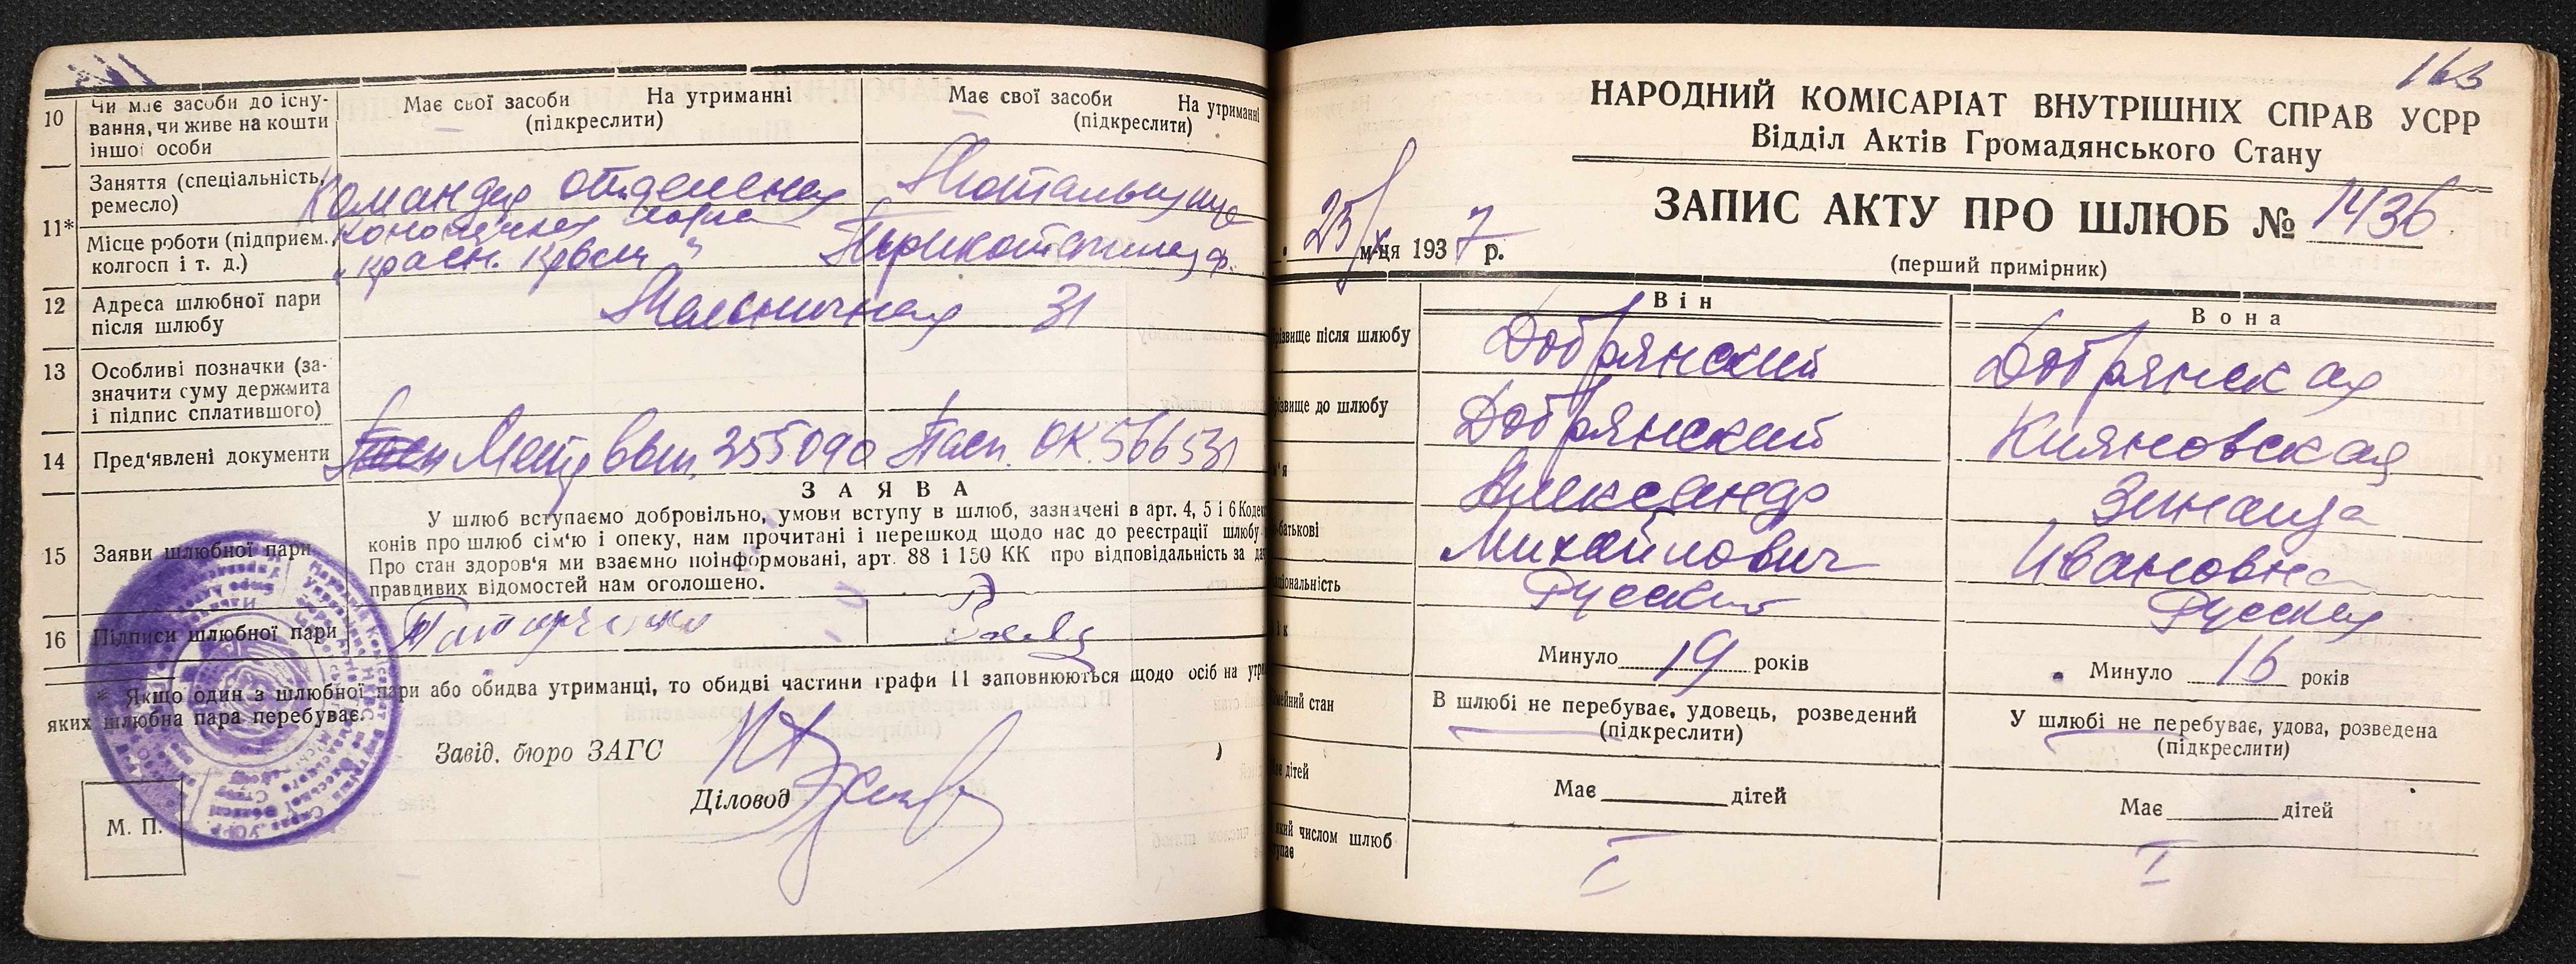 10
Чи має засоби до існу-
вання, чи живе на кошти
іншої особи
Має свої засоби На утриманні
(підкреслити)
Має свої засоби На утриманні
(підкреслити)
11*
Заняття (спеціальність,
ремесло)
Командир отделения
Мотальщица
Місце роботи (підприєм.,
колгосп і т. д.)
"красн.
12
Адреса шлюбної пари
після шлюбу
31
13
Особливі позначки (за-
значити суму держмита
і підпис сплатившого)
14
Пред'явлені документи
255090
Пасп. ОК. 566531
15
Заяви шлюбної пари
ЗАЯВА
У шлюб вступаємо добровільно, умови вступу в шлюб, зазначені в арт. 4, 5 і 6
конів про шлюб сім'ю і опеку, нам прочитані і перешкод щодо нас до реєстрації шлюбу
Про стан здоров'я ми взаємно поінформовані, арт. 88 і 150 КК про відповідальність за
правдивих відомостей нам оголошено.
16
Підписи шлюбної пари
* Якщо один з шлюбної пари або обидва утриманці, то обидві частини графи 11 заповнюються щодо осіб на
яких шлюбна пара перебуває.
Завід. бюро ЗАГС
Діловод
М. П.
163
НАРОДНИЙ КОМІСАРІАТ ВНУТРІШНІХ СПРАВ УСРР
Відділ Актів Громадянського Стану
ЗАПИС АКТУ ПРО ШЛЮБ № 1436
(перший примірник)
25/X м-ця 1937 р.
Він
Вона
різвище після шлюбу
Добрянский
Добрянская
різвище до шлюбу
Добрянский
Кияновская
м'я
Александр
Зинаида
батькові
Михайлович
Ивановна
ціональність
Русский
Русская
ік
Минуло 19 років
Минуло 16 років
мейний стан
В шлюбі не перебуває, удовець, розведений
(підкреслити)
У шлюбі не перебуває, удова, розведена
(підкреслити)
дітей
Має дітей
Має дітей
який числом шлюб
тупає
I
I